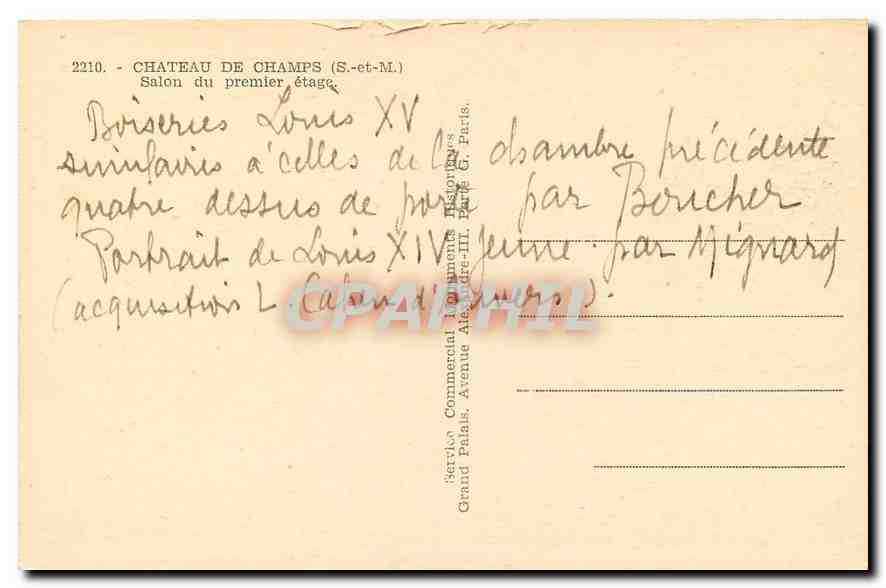 2210. - CHATEAU DE CHAMPS (S.-et-M.)
Salon du premier étage.
Boiseries Louis XV
similaires à celles de la chambre précédente
quatre dessus de porte par Boucher
Portrait de Louis XIV jeune par Mignard
(acquisition L. Cahen d'Anvers).
Service Commercial Monuments Historiques
Grand Palais. Avenue Alexandre-III. Paris G. Paris.
CPAPHIL